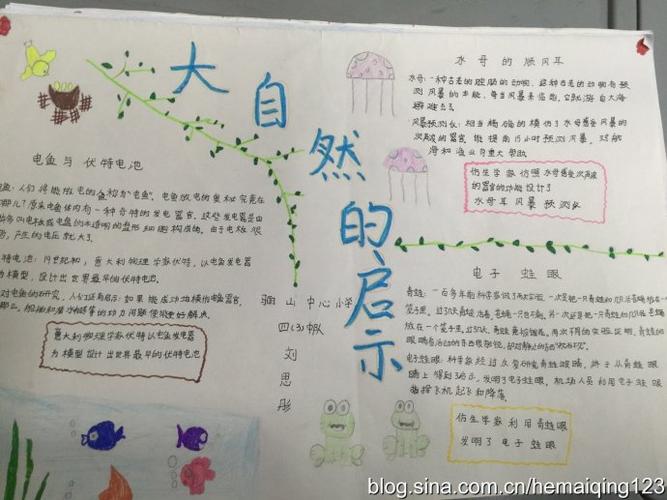 大自然的启示
电鱼与伏特电池
电鱼：人们将能放电的鱼称为"电鱼"，电鱼放电的奥秘究竟在
哪儿？原来电鱼体内有一种奇特的发电器官，这些发电器是由
许多叫电板或电盘的半透明的盘形细胞构成的，由于电板很
多，产生的电压就大了。
伏特电池：19世纪初，意大利物理学家伏特，以电鱼发电器
为模型，设计出世界最早的伏特电池。
对电鱼的研究，人们还有启示：如果能成功模仿电鱼器官，
那么，船舶和潜水艇等的动力问题便能更好解决
意大利物理学家伏特以电鱼发电器
为模型设计出世界最早的伏特电池
骊山中心小学
四(3)中队
刘
思
彤
水母的顺风耳
水母：一种古老的腔肠的动物，这种古老的动物有预
测风暴的本能，每当风暴来临前，它就游向大海
避难去了。
风暴预测仪：相当精确的模仿了水母感受风暴的
次声波的器官，能提前15小时预测风暴，对航
海和渔业有重大帮助
仿生学家仿照水母感受次声波
的器官的功能设计了
水母耳风暴预测仪
电子蛙眼
电子蛙眼：科学家经过反复研究青蛙眼睛，终于从青蛙眼
睛上得到了启示，发明了电子蛙眼，机场人员利用电子蛙眼
指挥飞机起飞和降落。
仿生学家利用青蛙眼
发明了电子蛙眼
blog.sina.com.cn/hemaiqing123